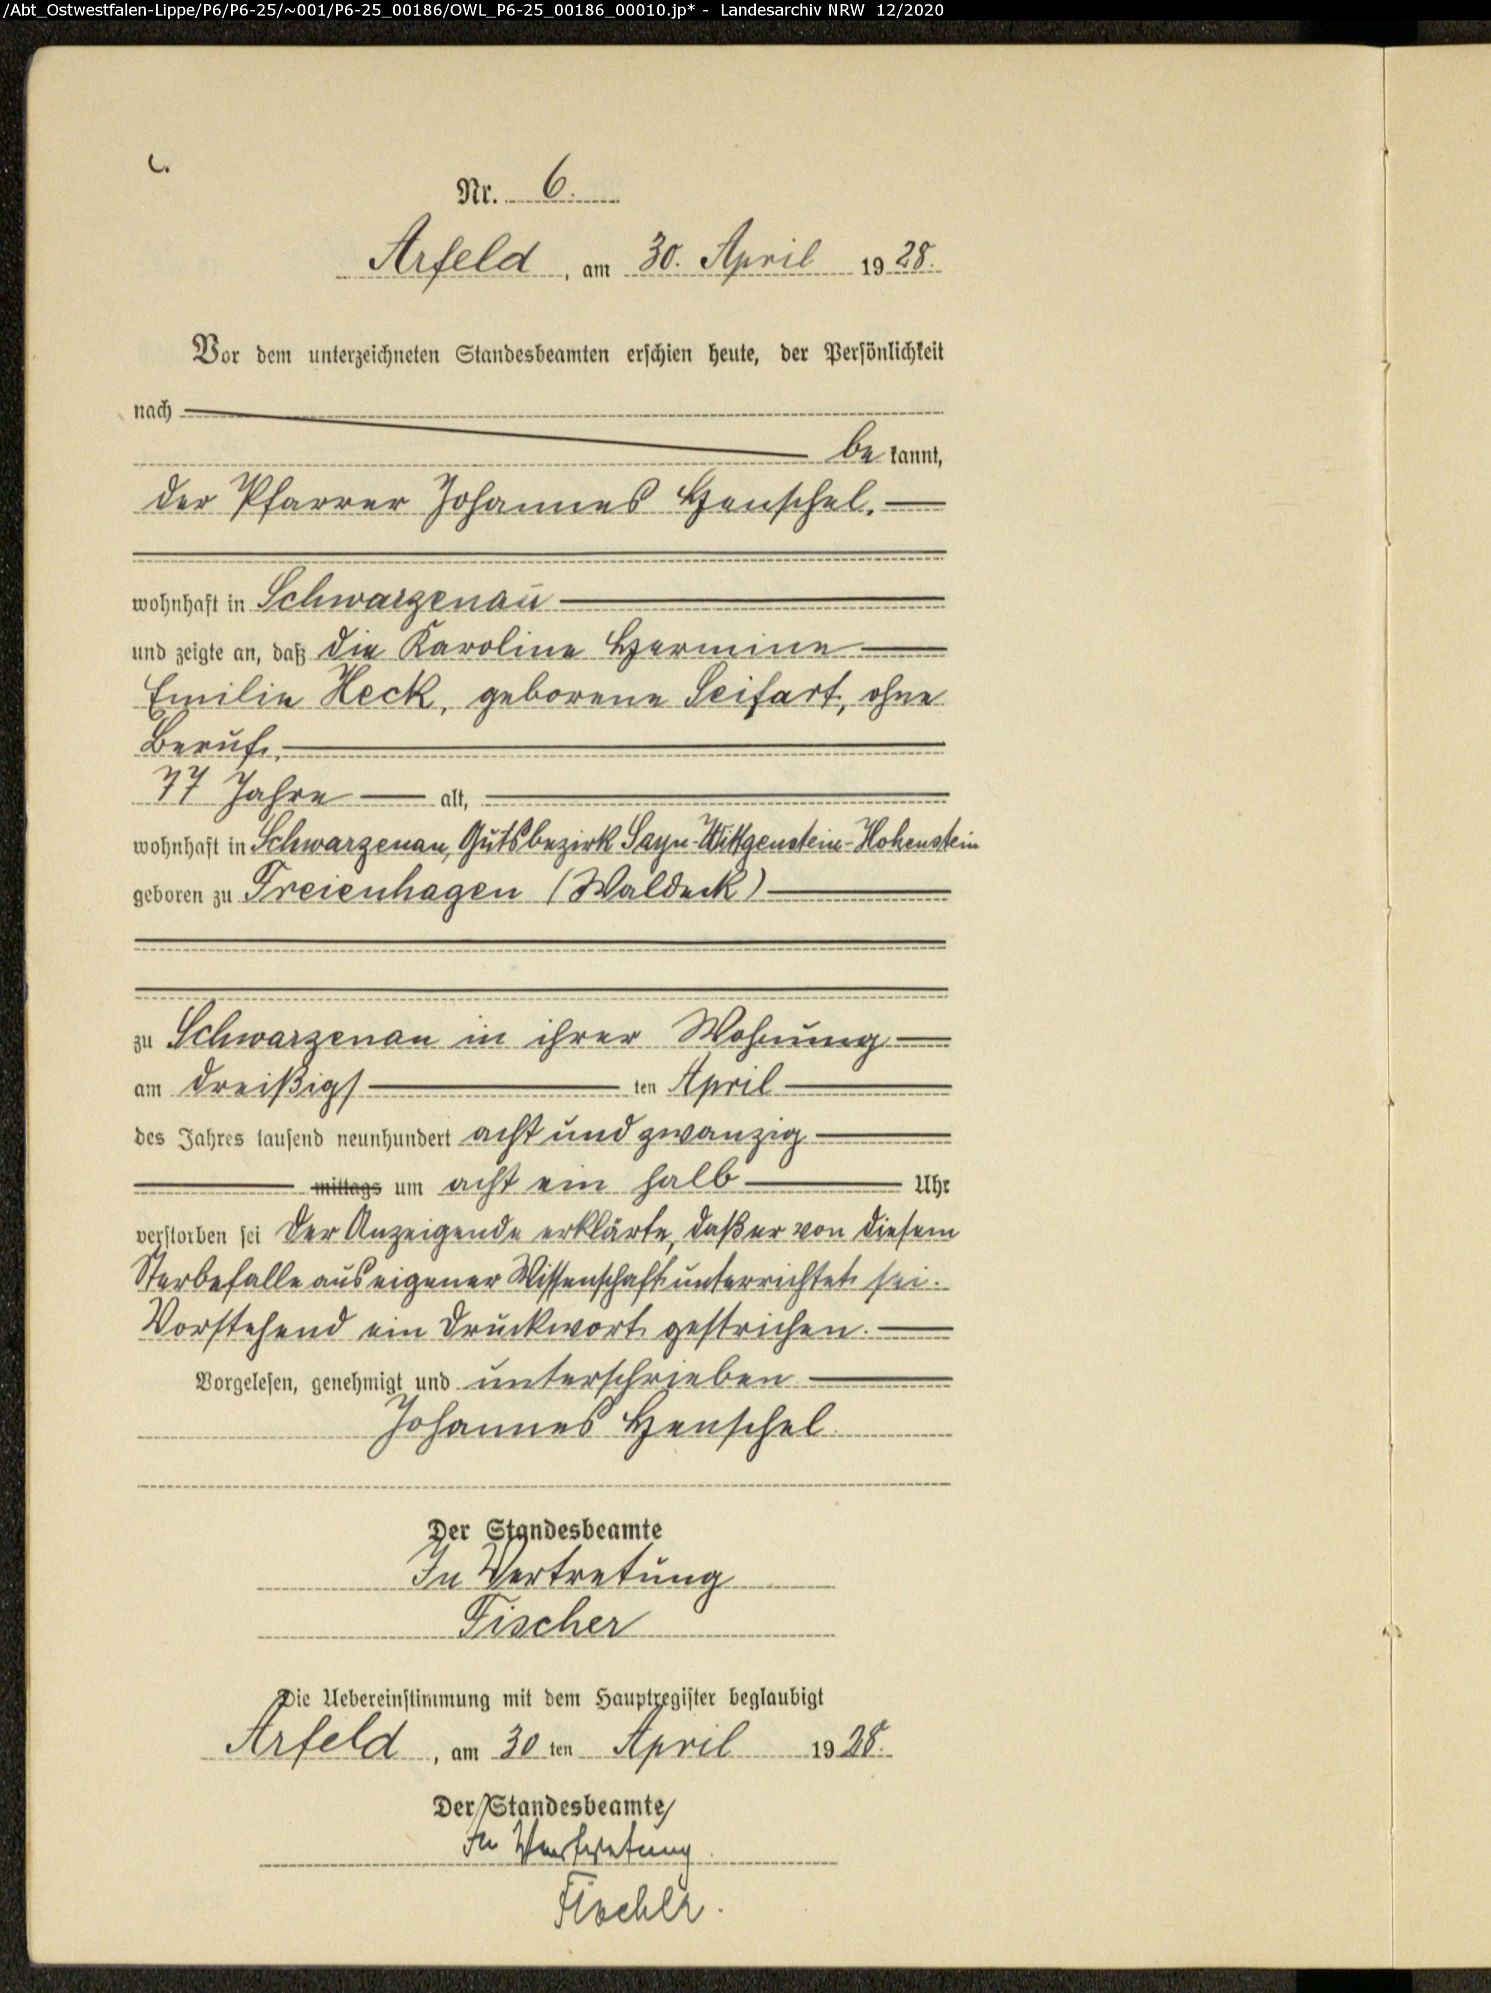 /Abt_Ostwestfalen-Lippe/P6/P6-25/~001/P6-25_00186/OWL_P6-25_00186_00010.jp* - Landesarchiv NRW 12/2020
C.
Nr. 6.
Arfeld, am 30. April 1928.
Vor dem unterzeichneten Standesbeamten erschien heute, der Persönlichkeit
nach
be kannt,
der Pfarrer Johannes Henschel.
wohnhaft in Schwarzenau
und zeigte an, daß die Karoline Hermine
Emilie Heck, geborene Seifart, ohne
Beruf,
77 Jahre alt,
wohnhaft in Schwarzenau, Gutsbezirk Sayn-Wittgenstein-Hohenstein
geboren zu Freienhagen (Waldeck)
zu Schwarzenau in ihrer Wohnung
am dreißigs ten April
des Jahres tausend neunhundert acht und zwanzig
mittags um acht ein halb Uhr
verstorben sei Der Anzeigende erklärte, daß er von diesem
Sterbefalle aus eigener Wissenschaft unterrichtet sei.
Vorstehend ein Druckwort gestrichen.
Vorgelesen, genehmigt und unterschrieben
Johannes Henschel.
Der Standesbeamte
In Vertretung
Fischer
Die Uebereinstimmung mit dem Hauptregister beglaubigt
Arfeld, am 30 ten April 1928.
Der Standesbeamte
In Vertretung
Fischer.